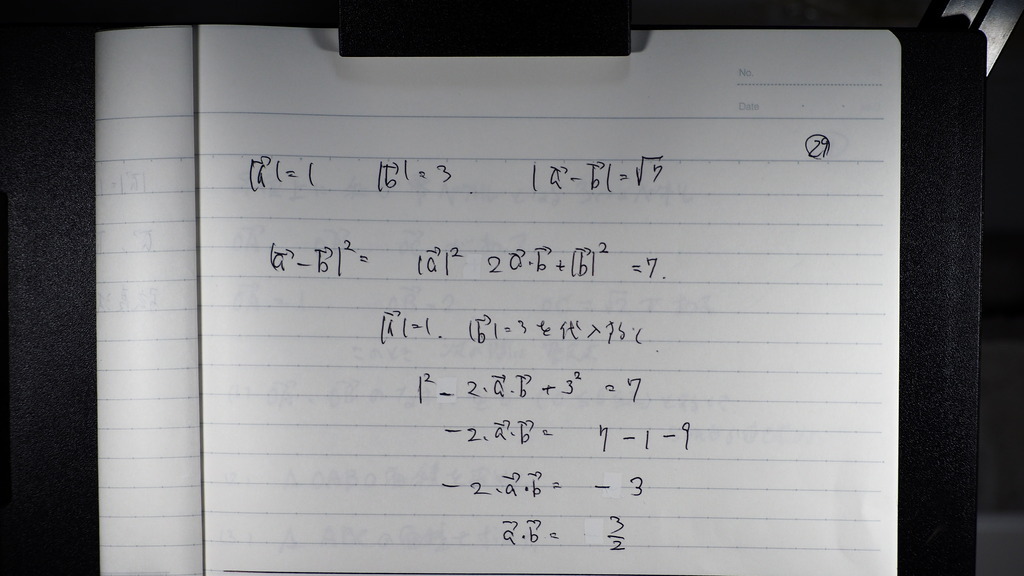 No.
Date
㉙
|a⃗|=1 |b⃗|=3 |a⃗-b⃗|=√7
|a⃗-b⃗|²= |a⃗|² 2a⃗·b⃗+|b⃗|² =7.
|a⃗|=1. |b⃗|=3を代入すると
1² - 2·a⃗·b⃗ + 3² = 7
-2·a⃗·b⃗ = 7-1-9
-2·a⃗·b⃗ = -3
a⃗·b⃗ = 3/2